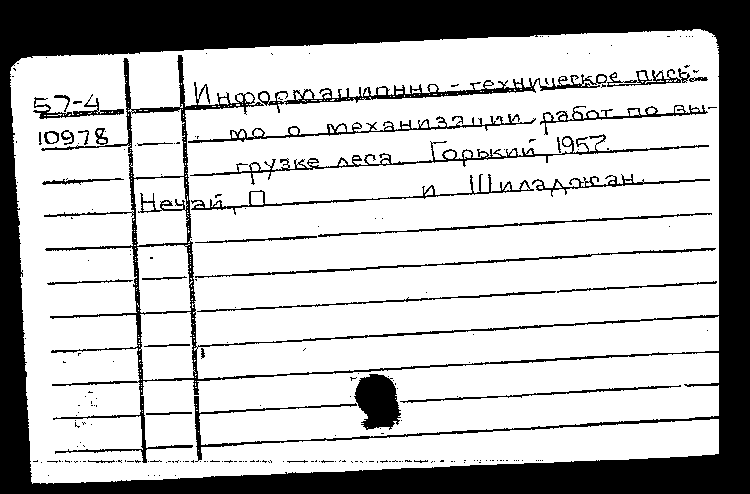 57-4 Информационно-техническое пись-
10978 мо о механизации работ по вы-
грузке леса. Горький, 1957.
Нечай, П и Шиладжан.